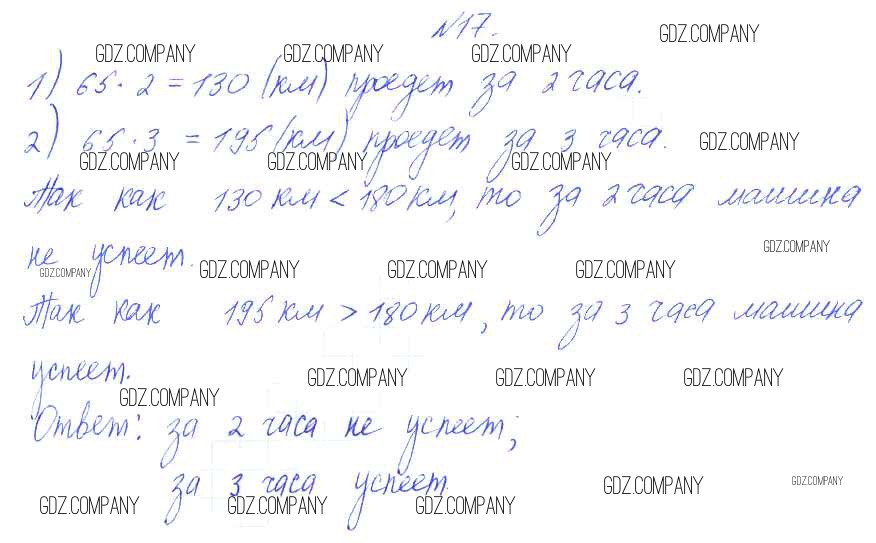 №17.
GDZ.COMPANY
GDZ.COMPANY GDZ.COMPANY GDZ.COMPANY
1) 65 · 2 = 130 (км) проедет за 2 часа.
2) 65 · 3 = 195 (км) проедет за 3 часа.
GDZ.COMPANY
GDZ.COMPANY GDZ.COMPANY GDZ.COMPANY
Так как 130 км < 180 км, то за 2 часа машина
не успеет.
GDZ.COMPANY
GDZ.COMPANY GDZ.COMPANY GDZ.COMPANY GDZ.COMPANY
Так как 195 км > 180 км, то за 3 часа машина
успеет.
GDZ.COMPANY GDZ.COMPANY GDZ.COMPANY
GDZ.COMPANY
Ответ: за 2 часа не успеет;
за 3 часа успеет.
GDZ.COMPANY GDZ.COMPANY
GDZ.COMPANY GDZ.COMPANY GDZ.COMPANY